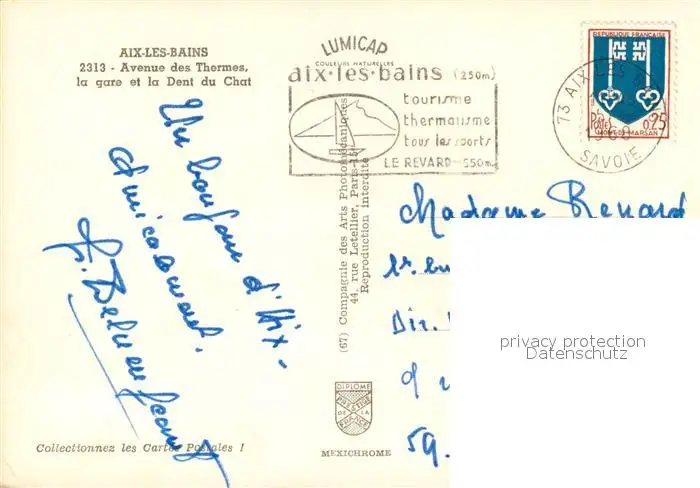 AIX-LES-BAINS
2313 - Avenue des Thermes,
la gare et la Dent du Chat
LUMICAP
COULEURS NATURELLES
aix·les·bains (250m)
tourisme
thermalisme
tous les sports
LE REVARD
REPUBLIQUE FRANÇAISE
POSTES 0,25
MONT-DE-MARSAN
73 AIX-LES-BAINS
SAVOIE
Un bonjour d'Aix.
Amicalement.
(67) Compagnie des Arts Photomécaniques
44, rue Letellier, Paris-15e
Reproduction interdite
Madame Renard
Dir.
59.
privacy protection
Datenschutz
DIPLOME
PRESTIGE
DE LA
FRANCE
Collectionnez les Cartes Postales !
MEXICHROME